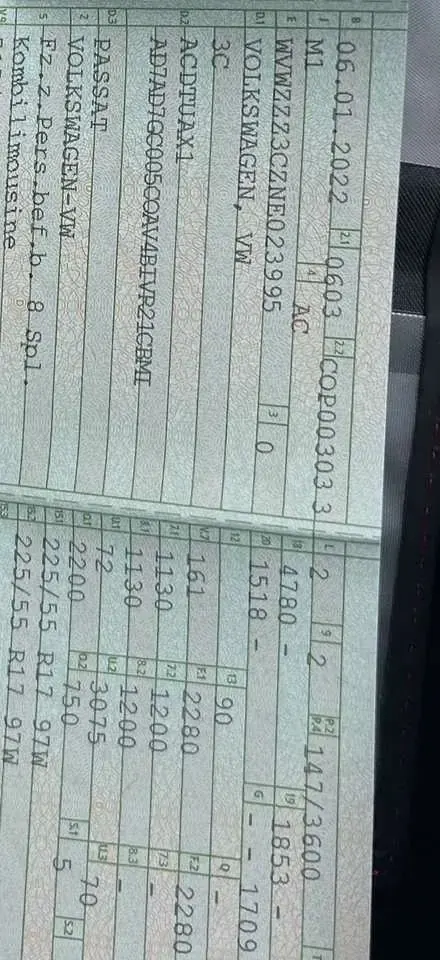 B 06.01.2022 2.1 0603 2.2 COP00303 3
J M1 4 AC
E WVWZZZ3CZNE023995 3 0
D.1 VOLKSWAGEN, VW
3C
D.2 ACDTUAX1
AD7AD7GC005COAV4BIVR21CBMI
D.3 PASSAT
2 VOLKSWAGEN-VW
5 Fz.z.Pers.bef.b. 8 Spl.
Kombilimousine
L 2 9 2 P.2 P.4 147/3600
18 4780 - 19 1853 -
20 1518 - G - - 1709
12 13 90 Q -
V.7 161 F.1 2280 F.2 2280
7.1 1130 7.2 1200 7.3 -
8.1 1130 8.2 1200 8.3 -
U.1 72 U.2 3075 U.3 70
O.1 2200 O.2 750 S.1 5 S.2
15.1 225/55 R17 97W
15.2 225/55 R17 97W